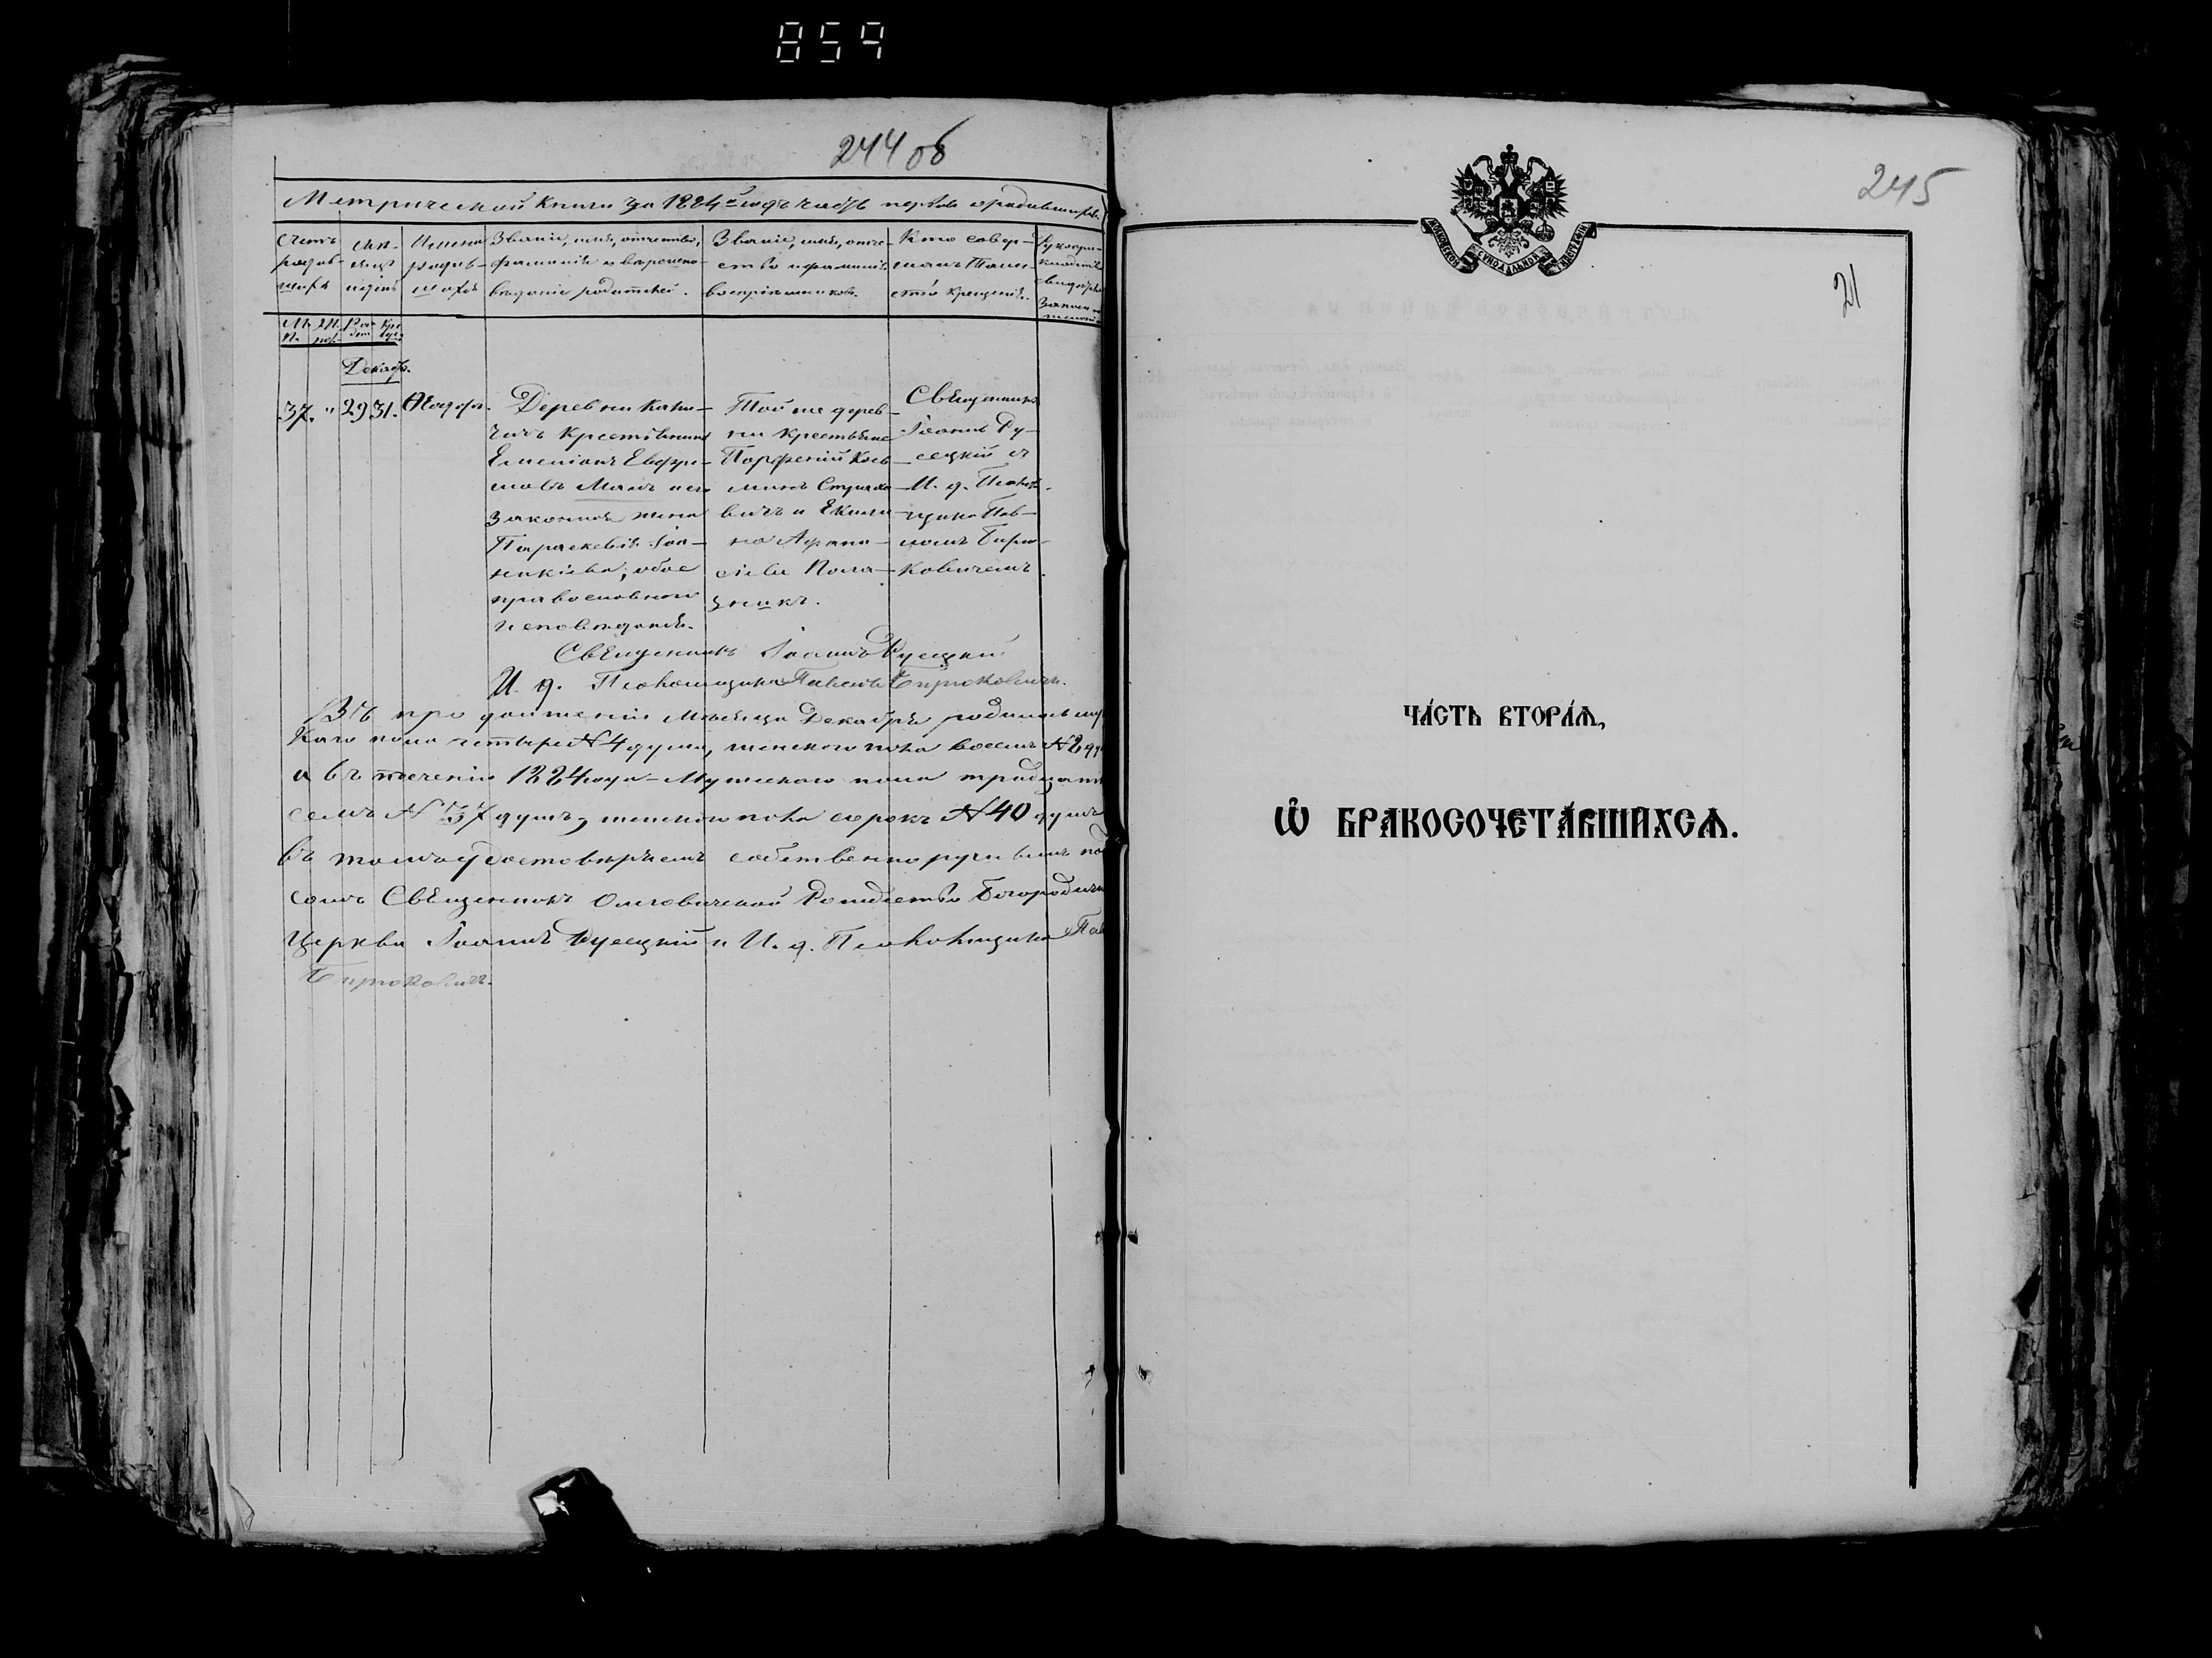 859
244 об
Метрической книги за 1884й годъ часть первая о родившихся
Счетъ родив-шихся
Мѣ-сяцъ и день
Имена родив-шихся
Званіе, имя, отчество, фамилія и вѣроиспо-вѣданіе родителей.
Званіе, имя, отче-ство и фамилія воспріемниковъ.
Кто совер-шалъ Таин-ство крещенія.
М. п. Ж. пол. Рож-ден. Кре-щен.
Декабрь.
37. " 29 31. Ѳеодоръ.
Деревни
чичъ крестьянинъ
Емеліанъ Евфи-
мовъ Мацъ и его
законная жена
Параскевія Іоа-
никіева, обое
православного
исповѣданія.
Той же дерев-
ни крестьяне
Парфеній Кось-
минъ
вичъ и
на Афана-
сіева
зникъ.
Священникъ
Іоаннъ Ру-
сецкій съ
И. д. Псалом-
щика Пав-
ломъ Бирю-
ковичемъ.
Священникъ Іоаннъ Русецкій
И. д. Псаломщика Павелъ Бирюковичъ.
Въ продолженіи Мѣсяца Декабря родилось муж
каго пола четыре № 4 души, женского пола восемь № 8 ду
а въ теченіи 1884 года - Мужескаго пола тридцать
семь № 37 душъ, женского пола сорокъ № 40 душъ
въ томъ удостовѣряемъ собственноручнымъ под
сомъ Священникъ Ольговичской Рождество Богородичн
Церкви Іоаннъ Русецкій и И. д. Псаломщика Пав
Бирюковичъ.
245
21
МОСКОВСКОЙ СѴНОДАЛЬНОЙ ТИПОГРАФІИ
ЧА́СТЬ ВТОРА́Ѧ,
Ѽ БРАКОСОЧЕТА́ВШИХСѦ.